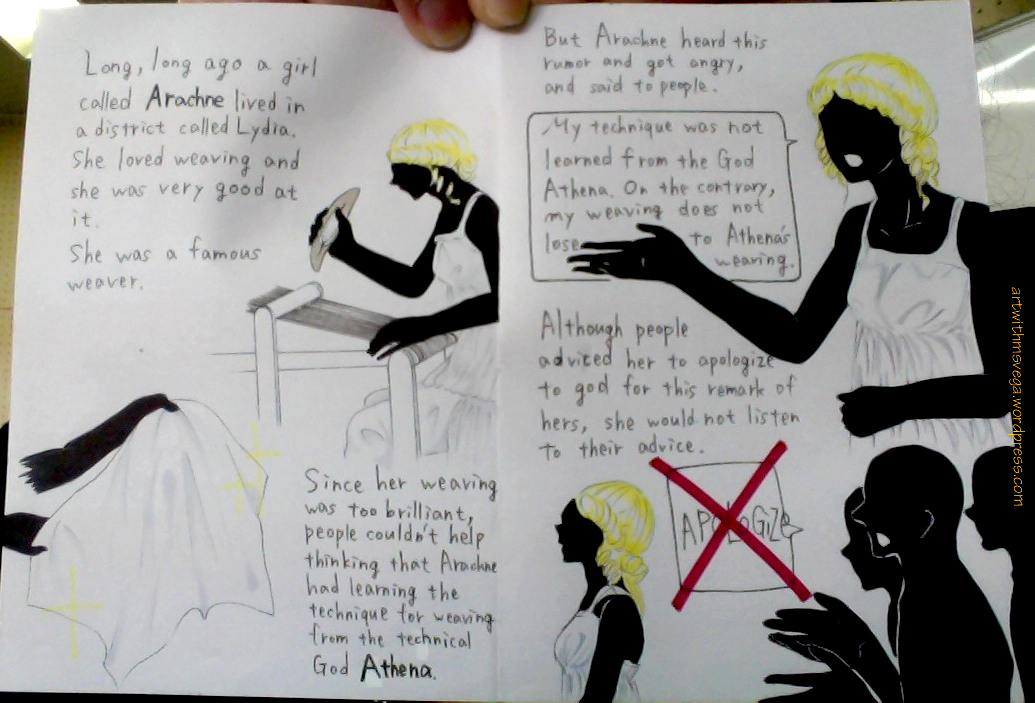 Long, long ago a girl
called Arachne lived in
a district called Lydia.
She loved weaving and
she was very good at
it.
She was a famous
weaver.
Since her weaving
was too brilliant,
people couldn't help
thinking that Arachne
had learning the
technique for weaving
from the technical
God Athena.
But Arachne heard this
rumor and got angry,
and said to people.
My technique was not
learned from the God
Athena. On the contrary,
my weaving does not
lose to Athena's
weaving.
Although people
adviced her to apologize
to god for this remark of
hers, she would not listen
to their advice.
APOLOGIZE
artwithmsvega.wordpress.com